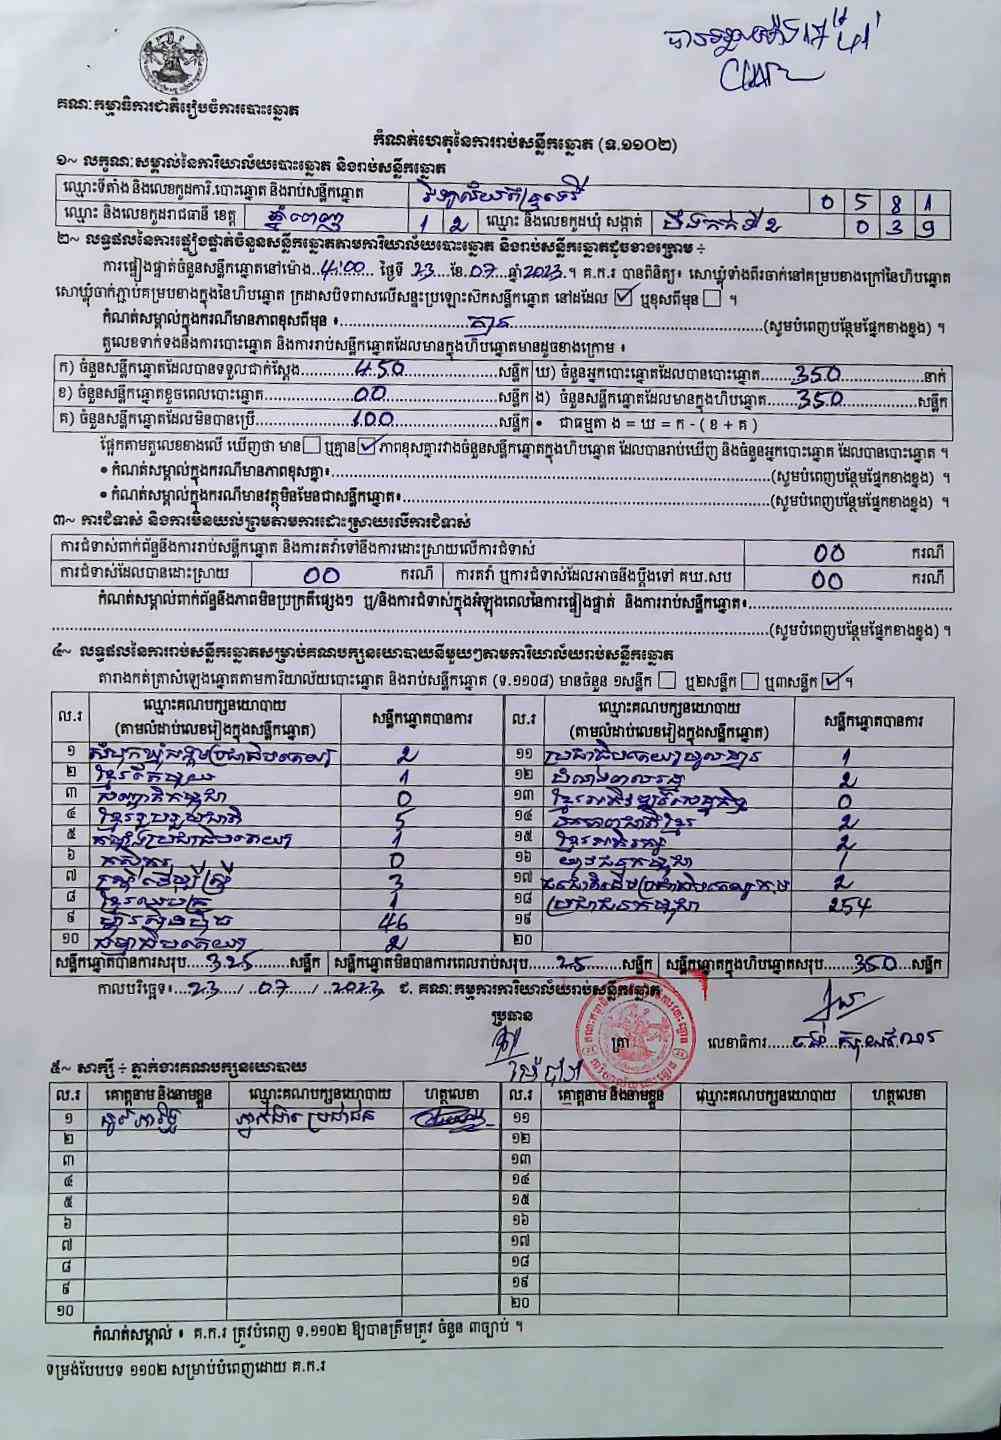 គណៈកម្មាធិការជាតិរៀបចំការបោះឆ្នោត
កំណត់ហេតុនៃការរាប់សន្លឹកឆ្នោត (ទ.១១០២)
១~ លក្ខណៈសម្គាល់នៃការិយាល័យបោះឆ្នោត និងរាប់សន្លឹកឆ្នោត
ឈ្មោះទីតាំង និងលេខកូដការិ.បោះឆ្នោត និងរាប់សន្លឹកឆ្នោត 0 5 8 1
ឈ្មោះ និងលេខកូដរាជធានី ខេត្ត ភ្នំពេញ 1 2 ឈ្មោះ និងលេខកូដឃុំ សង្កាត់ បឹងកក់ទី2 0 3 9
២~ លទ្ធផលនៃការផ្ទៀងផ្ទាត់ចំនួនសន្លឹកឆ្នោតតាមការិយាល័យបោះឆ្នោត និងរាប់សន្លឹកឆ្នោតដូចខាងក្រោម ÷
ការផ្ទៀងផ្ទាត់ចំនួនសន្លឹកឆ្នោតនៅម៉ោង..4:00 ថ្ងៃទី 23 ខែ 07 ឆ្នាំ 2023 ។ គ.ក.រ បានពិនិត្យ៖ សោឃ្លុំទាំងពីរចាក់នៅគម្របខាងក្រៅនៃហិបឆ្នោត
សោឃ្លុំចាក់ភ្ជាប់គម្របខាងក្នុងនៃហិបឆ្នោត ក្រដាសបិទពាសលើសន្ទះប្រឡោះស៊កសន្លឹកឆ្នោត នៅដដែល ☑ ឬខុសពីមុន ☐ ។
កំណត់សម្គាល់ក្នុងករណីមានភាពខុសពីមុន ៖ គ្មាន (សូមបំពេញបន្ថែមផ្នែកខាងខ្នង) ។
តួលេខទាក់ទងនឹងការបោះឆ្នោត និងការរាប់សន្លឹកឆ្នោតដែលមានក្នុងហិបឆ្នោតមានដូចខាងក្រោម ៖
ក) ចំនួនសន្លឹកឆ្នោតដែលបានទទួលជាក់ស្តែង 450 សន្លឹក ឃ) ចំនួនអ្នកបោះឆ្នោតដែលបានបោះឆ្នោត 350 នាក់
ខ) ចំនួនសន្លឹកឆ្នោតខូចពេលបោះឆ្នោត 00 សន្លឹក ង) ចំនួនសន្លឹកឆ្នោតដែលមានក្នុងហិបឆ្នោត 350 សន្លឹក
គ) ចំនួនសន្លឹកឆ្នោតដែលមិនបានប្រើ 100 សន្លឹក • ជាធម្មតា ង = ឃ = ក - ( ខ + គ )
ផ្អែកតាមតួលេខខាងលើ ឃើញថា មាន ☐ ឬគ្មាន ☑ ភាពខុសគ្នារវាងចំនួនសន្លឹកឆ្នោតក្នុងហិបឆ្នោត ដែលបានរាប់ឃើញ និងចំនួនអ្នកបោះឆ្នោត ដែលបានបោះឆ្នោត ។
• កំណត់សម្គាល់ក្នុងករណីមានភាពខុសគ្នា៖ (សូមបំពេញបន្ថែមផ្នែកខាងខ្នង) ។
• កំណត់សម្គាល់ក្នុងករណីមានវត្ថុមិនមែនជាសន្លឹកឆ្នោត៖ (សូមបំពេញបន្ថែមផ្នែកខាងខ្នង) ។
៣~ ការជំទាស់ និងការមិនយល់ព្រមតាមការដោះស្រាយលើការជំទាស់
ការជំទាស់ពាក់ព័ន្ធនឹងការរាប់សន្លឹកឆ្នោត និងការតវ៉ាទៅនឹងការដោះស្រាយលើការជំទាស់ 00 ករណី
ការជំទាស់ដែលបានដោះស្រាយ 00 ករណី ការតវ៉ា ឬការជំទាស់ដែលអាចនឹងប្តឹងទៅ គឃ.សប 00 ករណី
កំណត់សម្គាល់ពាក់ព័ន្ធនឹងភាពមិនប្រក្រតីផ្សេងៗ ឬ/និងការជំទាស់ក្នុងអំឡុងពេលនៃការផ្ទៀងផ្ទាត់ និងការរាប់សន្លឹកឆ្នោត៖
(សូមបំពេញបន្ថែមផ្នែកខាងខ្នង) ។
៤~ លទ្ធផលនៃការរាប់សន្លឹកឆ្នោតសម្រាប់គណបក្សនយោបាយនីមួយៗតាមការិយាល័យរាប់សន្លឹកឆ្នោត
តារាងកត់ត្រាសំឡេងឆ្នោតតាមការិយាល័យបោះឆ្នោត និងរាប់សន្លឹកឆ្នោត (ទ.១១០៨) មានចំនួន ១សន្លឹក ☐ ឬ២សន្លឹក ☐ ឬ៣សន្លឹក ☑ ។
ល.រ ឈ្មោះគណបក្សនយោបាយ (តាមលំដាប់លេខរៀងក្នុងសន្លឹកឆ្នោត) សន្លឹកឆ្នោតបានការ ល.រ ឈ្មោះគណបក្សនយោបាយ (តាមលំដាប់លេខរៀងក្នុងសន្លឹកឆ្នោត) សន្លឹកឆ្នោតបានការ
១ សំបុកឃ្មុំសង្គមប្រជាធិបតេយ្យ 2 ១១ ប្រជាធិបតេយ្យមូលដ្ឋាន 1
២ ខ្មែរតែមួយ 1 ១២ 2
៣ សញ្ជាតិកម្ពុជា 0 ១៣ ខ្មែរអភិវឌ្ឍន៍សេដ្ឋកិច្ច 0
៤ ខ្មែររួបរួមជាតិ 5 ១៤ ឯកភាពជាតិខ្មែរ 2
៥ កម្លាំងប្រជាធិបតេយ្យ 1 ១៥ ខ្មែរអភិរក្ស 2
៦ កសិករ 0 ១៦ យុវជនកម្ពុជា 1
៧ ស្ត្រីដើម្បីស្ត្រី 3 ១៧ ជនជាតិដើមប្រជាធិបតេយ្យកម្ពុជា 2
៨ ខ្មែរឈប់ក្រ 1 ១៨ ប្រជាជនកម្ពុជា 254
៩ ហ៊្វុនស៊ិនប៉ិច 46 ១៩
១០ ធម្មាធិបតេយ្យ 2 ២០
សន្លឹកឆ្នោតបានការសរុប 325 សន្លឹក សន្លឹកឆ្នោតមិនបានការពេលរាប់សរុប 25 សន្លឹក សន្លឹកឆ្នោតក្នុងហិបឆ្នោតសរុប 350 សន្លឹក
កាលបរិច្ឆេទ៖ 23 / 07 / 2023 ជ. គណៈកម្មការការិយាល័យរាប់សន្លឹកឆ្នោត
ប្រធាន
ត្រា លេខាធិការ
៥~ សាក្សី ÷ ភ្នាក់ងារគណបក្សនយោបាយ
ល.រ គោត្តនាម និងនាមខ្លួន ឈ្មោះគណបក្សនយោបាយ ហត្ថលេខា ល.រ គោត្តនាម និងនាមខ្លួន ឈ្មោះគណបក្សនយោបាយ ហត្ថលេខា
១ ភ្នាក់ងារ ប្រជាជន ១១
២ ១២
៣ ១៣
៤ ១៤
៥ ១៥
៦ ១៦
៧ ១៧
៨ ១៨
៩ ១៩
១០ ២០
កំណត់សម្គាល់ ៖ គ.ក.រ ត្រូវបំពេញ ទ.១១០២ ឱ្យបានត្រឹមត្រូវ ចំនួន ៣ច្បាប់ ។
ទម្រង់បែបបទ ១១០២ សម្រាប់បំពេញដោយ គ.ក.រ